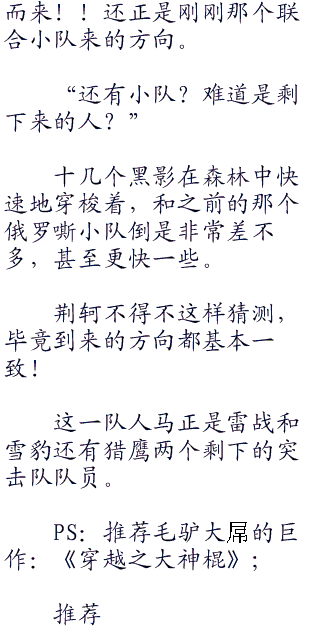 而来！！还正是刚刚那个联
合小队来的方向。
“还有小队？难道是剩
下来的人？”
十几个黑影在森林中快
速地穿梭着，和之前的那个
俄罗嘶小队倒是非常差不
多，甚至更快一些。
荆轲不得不这样猜测，
毕竟到来的方向都基本一
致！
这一队人马正是雷战和
雪豹还有猎鹰两个剩下的突
击队队员。
PS：推荐毛驴大屌的巨
作：《穿越之大神棍》；
推荐